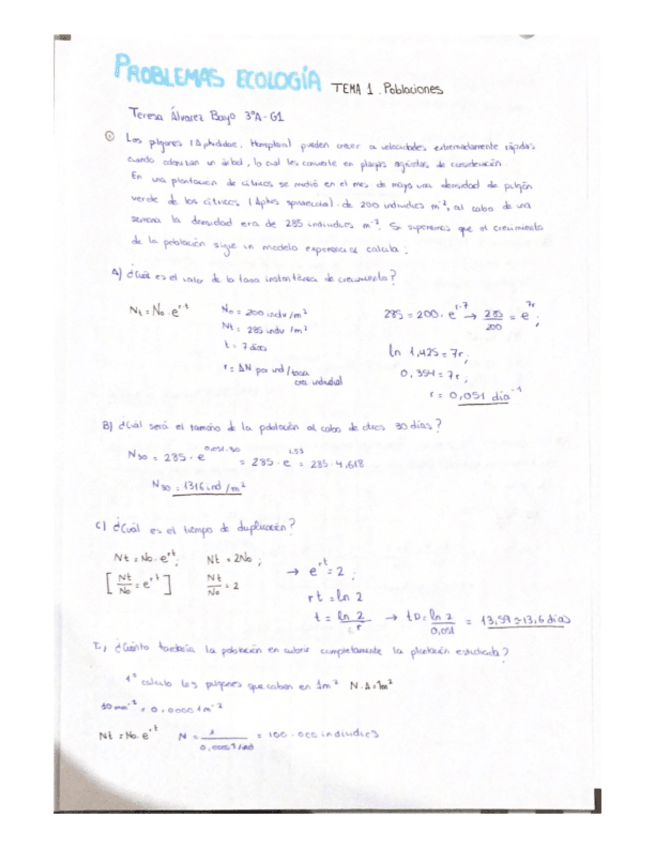 PROBLEMAS ECOLOGÍA TEMA 1. Poblaciones
Teresa Álvarez Bayo 3ºA-G1
① Los pulgones (Aphididae, Homoptera) pueden crecer a velocidades extremadamente rápidas
cuando colonizan un árbol, lo cual les convierte en plagas agrícolas de consideración.
En una plantación de cítricos se midió en el mes de mayo una densidad de pulgón
verde de los cítricos (Aphis spiraecola) de 200 individuos m⁻², al cabo de una
semana la densidad era de 285 individuos m⁻². Si suponemos que el crecimiento
de la población sigue un modelo exponencial calcula:
A) ¿Cuál es el valor de la tasa instantánea de crecimiento?
Nt = No · e^r·t
No = 200 indiv/m²
Nt = 285 indiv/m²
t = 7 días
r = ΔN por ind/tasa
crec individual
285 = 200 · e^r·7 → 285/200 = e^7r ;
ln 1,425 = 7r ;
0,354 = 7r ;
r = 0,051 día⁻¹
B) ¿Cuál será el tamaño de la población al cabo de otros 30 días?
N30 = 285 · e^0,051·30 = 285 · e^1,53 = 285 · 4,618
N30 = 1316 ind/m²
C) ¿Cuál es el tiempo de duplicación?
Nt = No · e^rt ; Nt = 2No ;
[Nt/No = e^rt] Nt/No = 2
→ e^rt = 2 ;
rt = ln 2
t = ln 2/r → tD = ln 2/0,051 = 13,59 ≃ 13,6 días
¿Cuánto tardaría la población en cubrir completamente la plantación estudiada?
1º calculo los pulgones que caben en 1m² N·A = 1m²
10 mm⁻² = 0,00001 m⁻²
Nt = No · e^r·t N = = 100.000 individuos